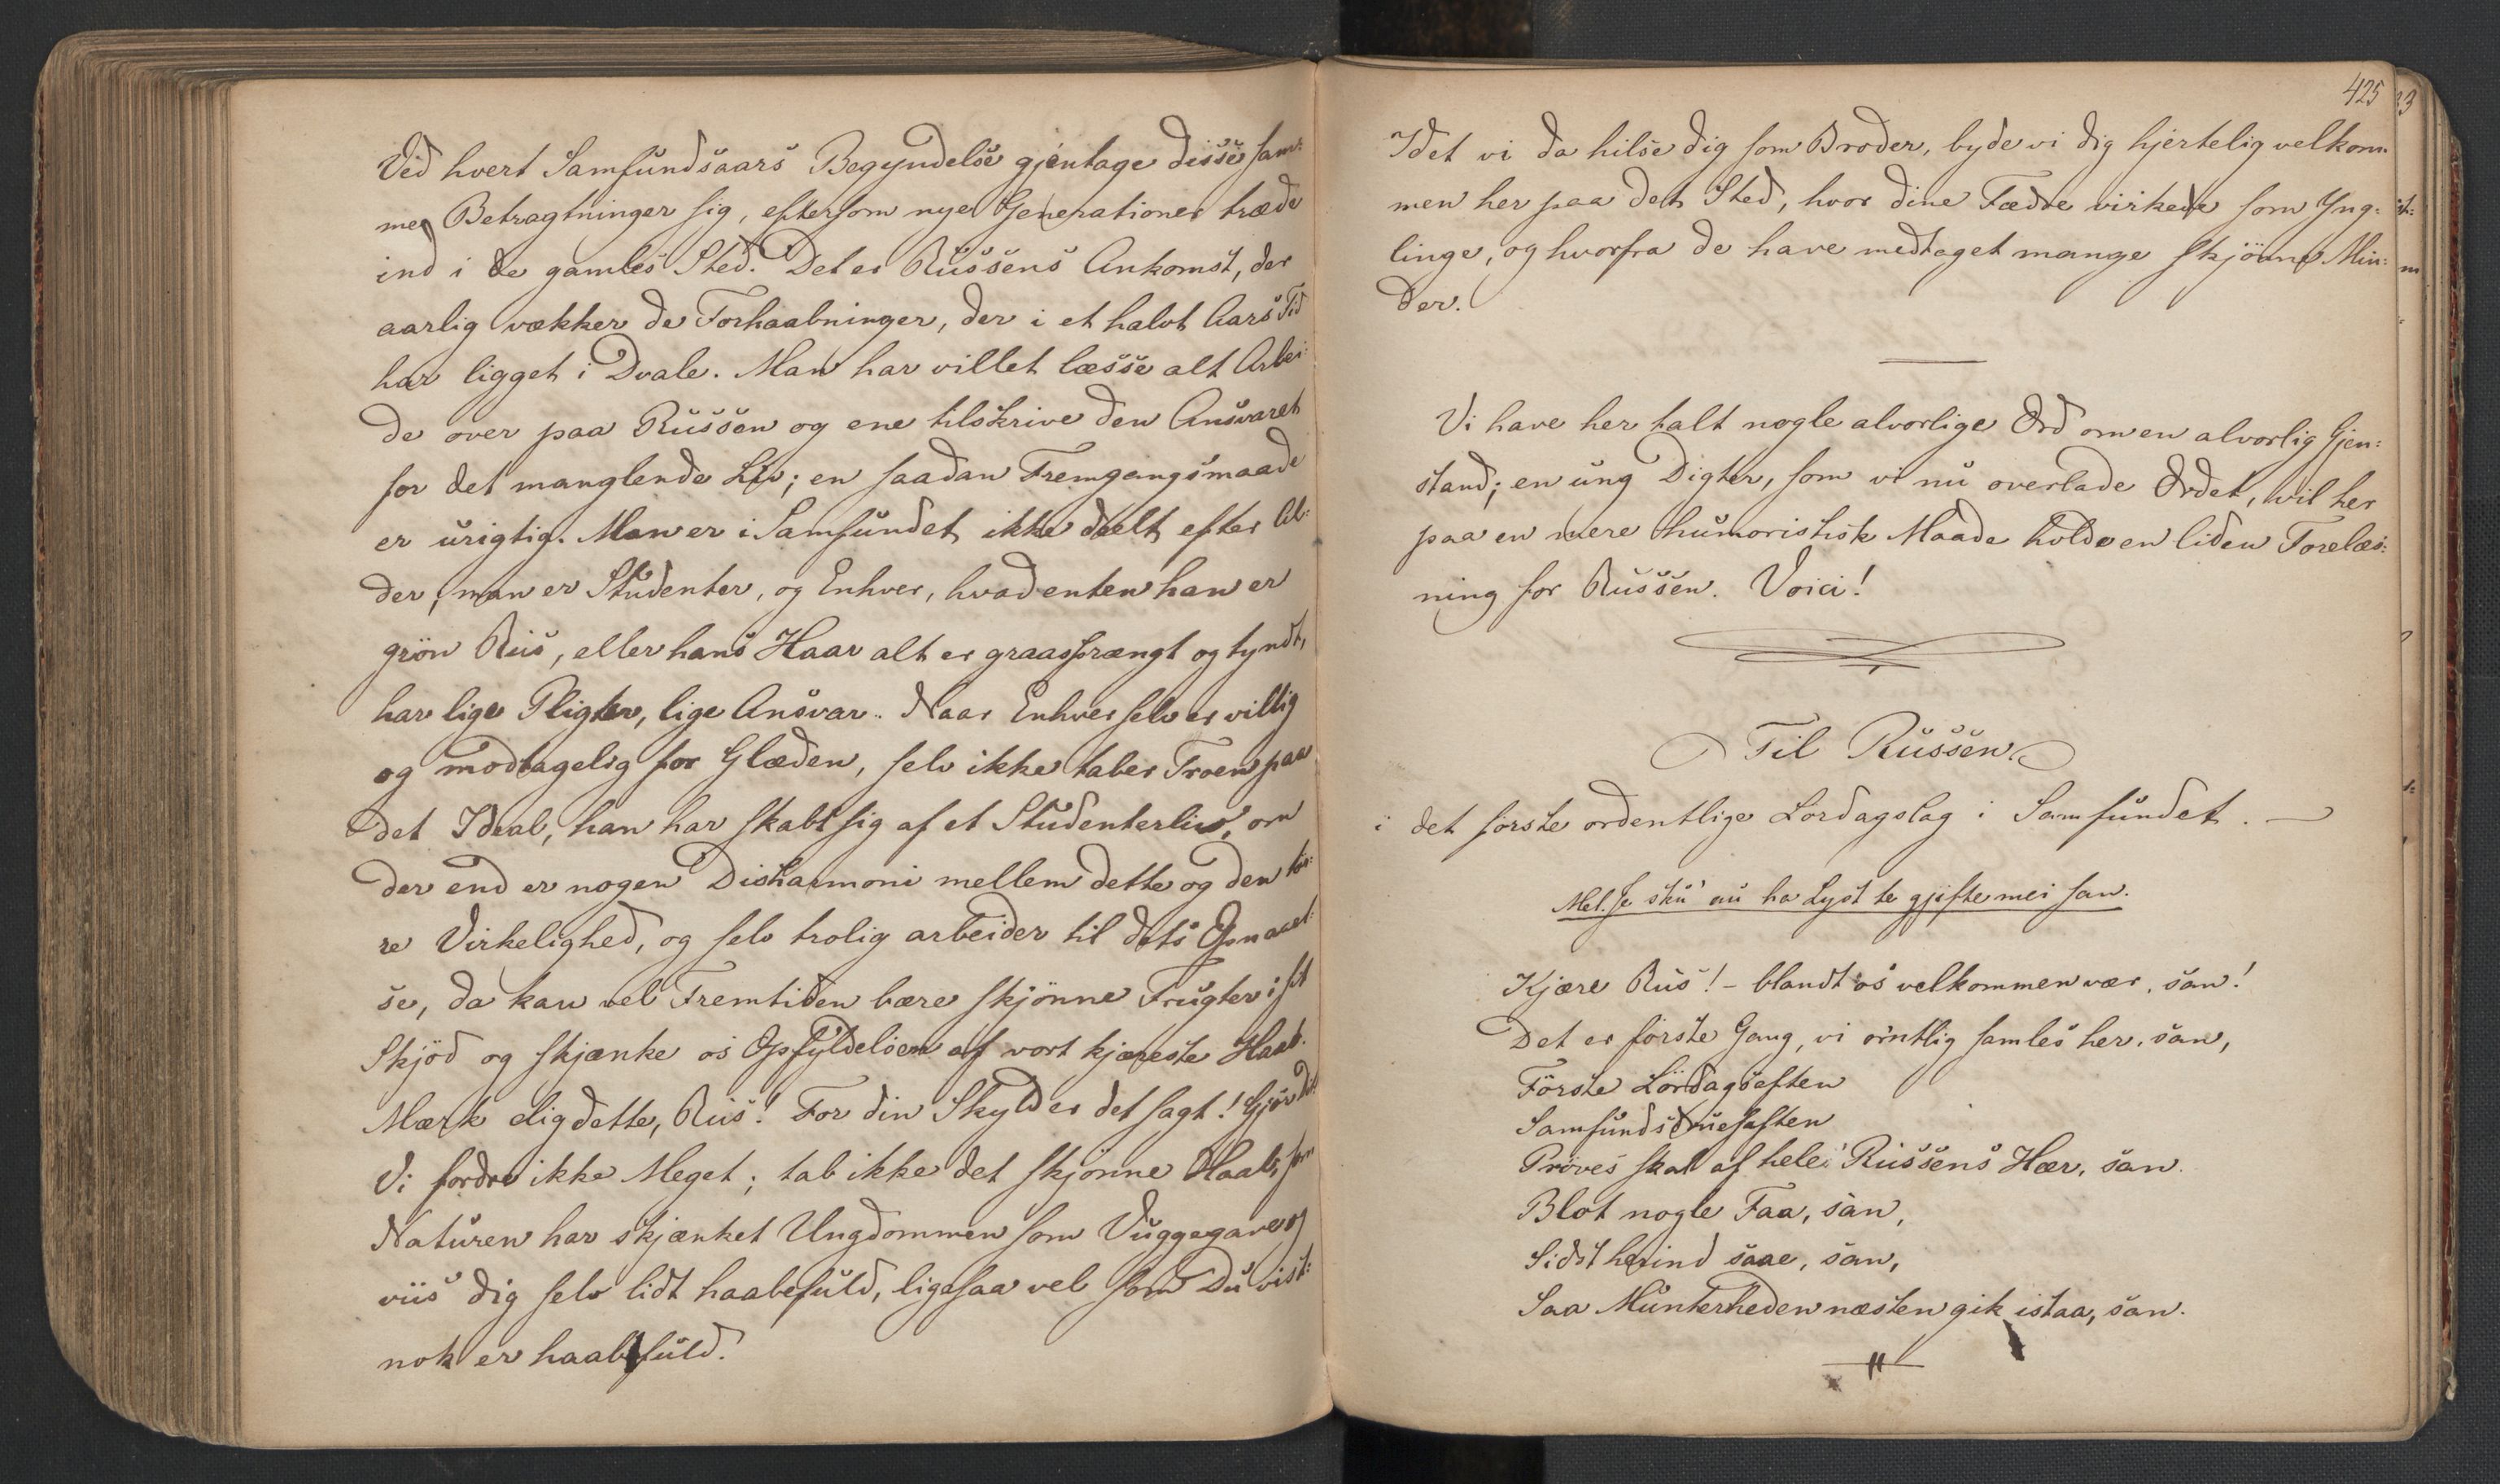 Ved hvert Samfundsaars Begyndelse gjentage disse sam-
me Betragtninger sig, eftersom nye Generationer træde
ind i de gamles Sted. Det er Russens Ankomst, der
aarlig vækker de Forhaabninger, der i et halvt Aars Tid
har ligget i Dvale. Man har villet læsse alt Arbei-
de over paa Russen og ene tilskrive den Ansvaret
for det manglende Liv; en saadan Fremgangsmaade
er urigtig. Man er i Samfundet ikke deelt efter Al-
der; man er Studenter, og Enhver, hvadenten han er
grön Rus, eller hans Haar alt er graasprængt og tyndt,
har lige Pligter, lige Ansvar. Naar Enhver selv er villig
og modtagelig for Glæden, selv ikke taber Troen paa
det Ideal, han har skabt sig af et Studenterliv, om
der end er nogen Disharmoni mellem dette og den tör-
re Virkelighed, og selv trolig arbeider til dets Opnaael-
se, da kan vel Fremtiden bære skjönne Frugter i sit
Skjöd og skjænke os Opfyldelsen af vort kjæreste Haab.
Mærk dig dette, Rus! For din Skyld er det sagt! Gjör det!
Vi fordre ikke Meget; tab ikke det skjönne Haab, som
Naturen har skjænket Ungdommen som Vuggegave og
viis dig selv lidt haabefuld, ligesaa vel som Du vist-
nok er haabfuld.
425
Idet vi da hilse dig som Broder, byde vi dig hjertelig velkom-
men her paa det Sted, hvor dine Fædre virkede som Yng-
linge, og hvorfra de have medtaget mange skjönne Min-
der.
Vi have her talt nogle alvorlige Ord om en alvorlig Gjen-
stand; en ung Digter, som vi nu overlade Ordet, vil her
paa en mere humoristisk Maade holde en liden Forelæs-
ning for Russen. Voici!
Til Russen
i det förste ordentlige Lördagslag i Samfundet.
Mel. Je sku' nu ha Lyst te gjifte mei san.
Kjære Rus! - blandt os velkommen vær, san!
Det er förste Gang, vi orntlig samles her, san,
Förste Lördagsaften
Samfundsdruesaften
Pröves skal af hele Russens Hær, san.
Blot nogle Faa, san,
Sidst herind saae, san,
Saa Munterheden næsten gik istaa, san.